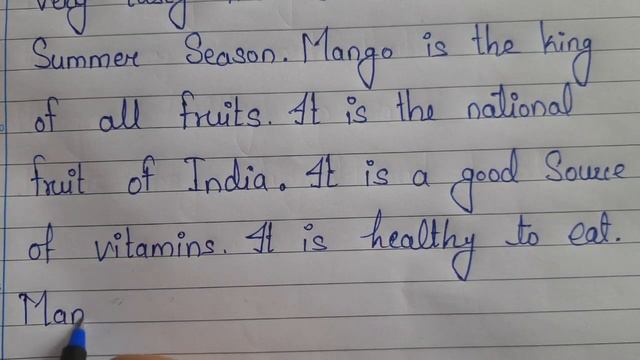 very
Summer Season. Mango is the king
of all fruits. It is the national
fruit of India. It is a good Source
of vitamins. It is healthy to eat.
Man